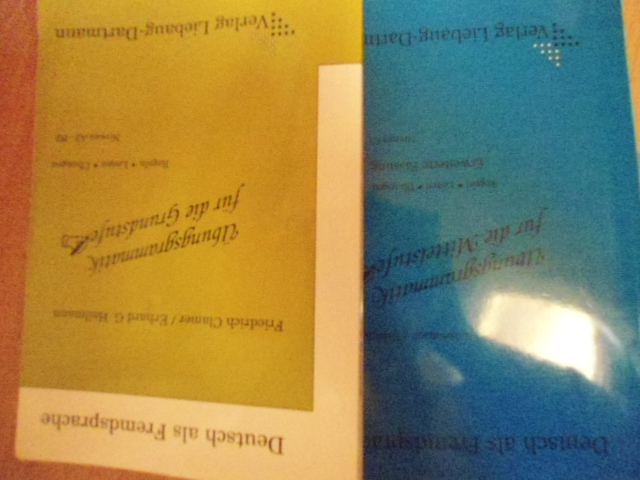 Deutsch als Fremdsprac
Übungsgrammatik
für die Mittelstufe
Regeln • Listen • Übungen
Erweiterte Fassung
Niveau
Verlag Liebaug-Dartm
Deutsch als Fremdsprache
Friedrich Clamer / Erhard G. Heilmann
Übungsgrammatik
für die Grundstufe
Regeln • Listen • Übungen
Niveau A2 - B2
Verlag Liebaug-Dartmann